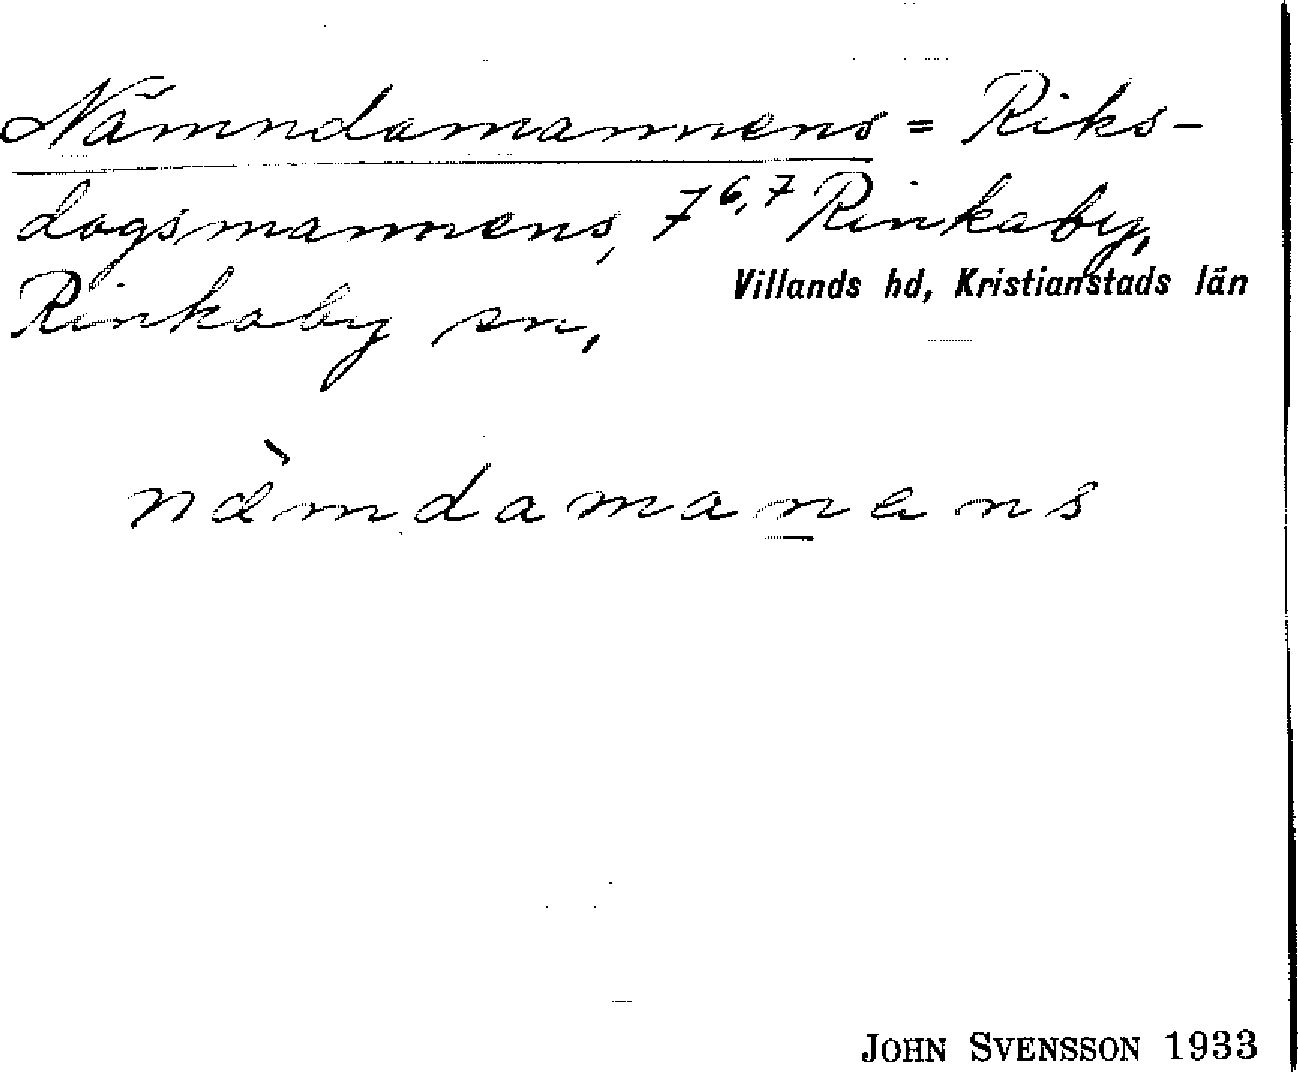 Nämndamannens = Riks-
dagsmannens, 7⁶,⁷ Rinkaby,
Rinkaby sn,
Villands hd, Kristianstads län
næ̀mdamanens
JOHN SVENSSON 1933